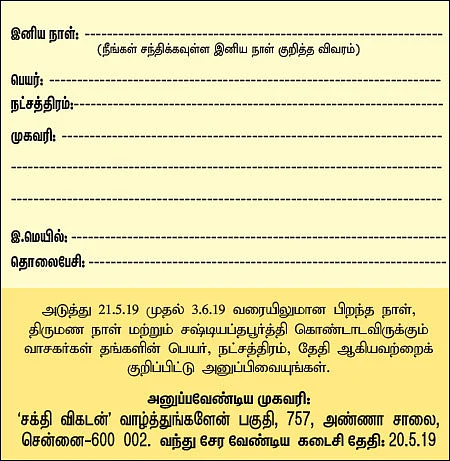 இனிய நாள்:
(நீங்கள் சந்திக்கவுள்ள இனிய நாள் குறித்த விவரம்)
பெயர்:
நட்சத்திரம்:
முகவரி:
இ.மெயில்:
தொலைபேசி:
அடுத்து 21.5.19 முதல் 3.6.19 வரையிலுமான பிறந்த நாள்,
திருமண நாள் மற்றும் சஷ்டியப்தபூர்த்தி கொண்டாடவிருக்கும்
வாசகர்கள் தங்களின் பெயர், நட்சத்திரம், தேதி ஆகியவற்றைக்
குறிப்பிட்டு அனுப்பிவையுங்கள்.
அனுப்பவேண்டிய முகவரி:
‘சக்தி விகடன்’ வாழ்த்துங்களேன் பகுதி, 757, அண்ணா சாலை,
சென்னை-600 002. வந்து சேர வேண்டிய கடைசி தேதி: 20.5.19